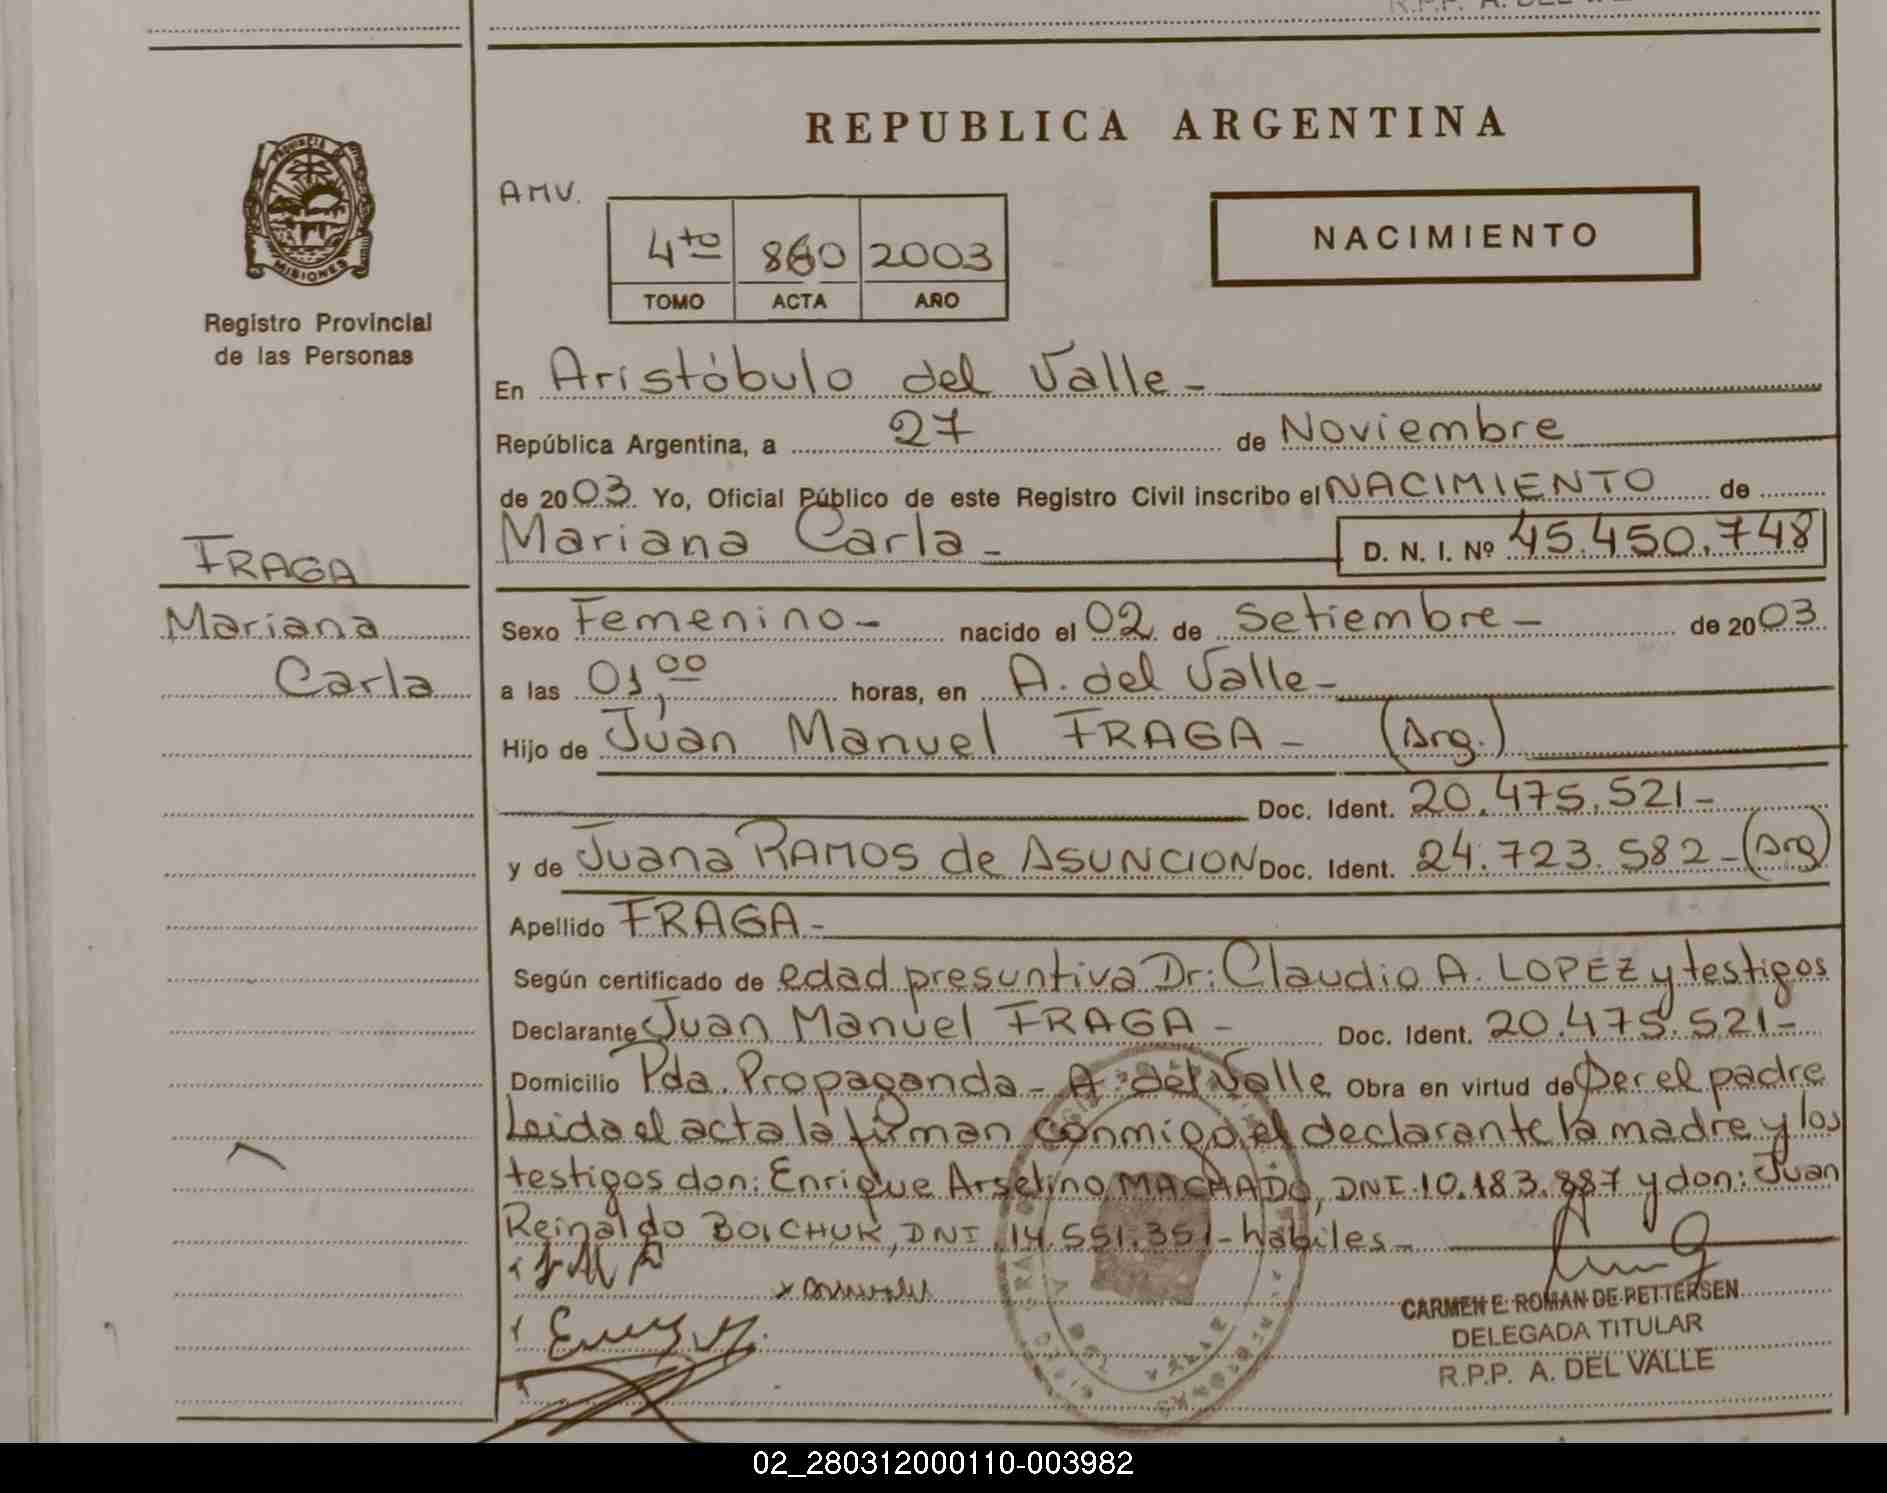 REPUBLICA ARGENTINA
PROVINCIA DE
MISIONES
Registro Provincial
de las Personas
AMV.
4to 860 2003
TOMO ACTA AÑO
NACIMIENTO
En Aristóbulo del Valle -
República Argentina, a 27 de Noviembre
de 2003. Yo, Oficial Público de este Registro Civil inscribo el NACIMIENTO de
Mariana Carla - D. N. I. Nº 45.450.748
FRAGA
Mariana
Carla
Sexo Femenino - nacido el 02 de Setiembre - de 2003
a las 01,00 horas, en A. del Valle -
Hijo de Juan Manuel FRAGA - (Arg.)
Doc. Ident. 20.475.521 -
y de Juana RAMOS de ASUNCION Doc. Ident. 24.723.582 - (Arg)
Apellido FRAGA -
Según certificado de edad presuntiva Dr: Claudio A. LOPEZ y testigos
Declarante Juan Manuel FRAGA - Doc. Ident. 20.475.521 -
Domicilio Pda. Propaganda - A. del Valle Obra en virtud de Ser el padre
Leida el acta la firman conmigo, el declarante la madre y los
testigos don: Enrique Arselino MACHADO, DNI. 10.183.887 y don: Juan
Reinaldo BOICHUK, DNI 14.551.351 - hábiles -
CARMEN E. ROMAN DE PETTERSEN
DELEGADA TITULAR
R.P.P. A. DEL VALLE
02_280312000110-003982